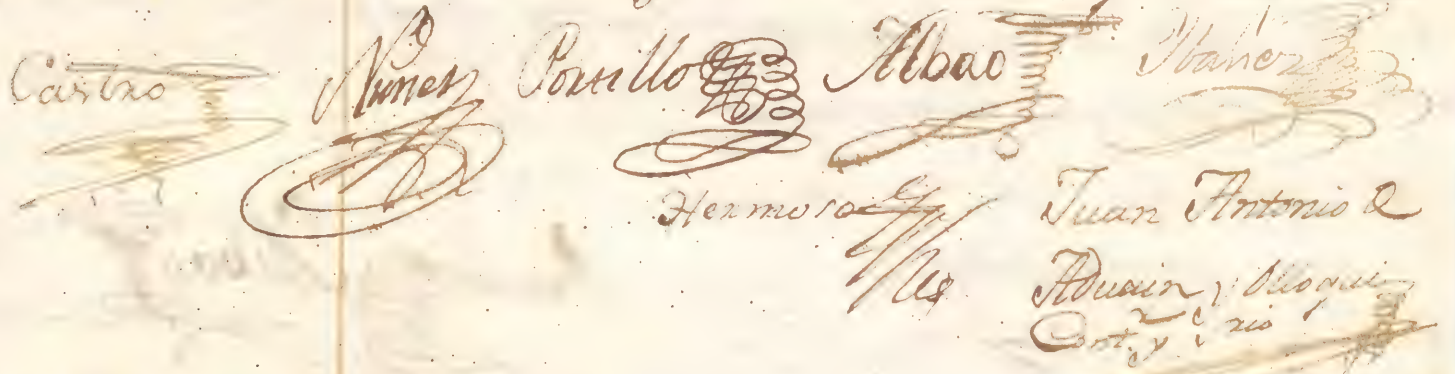 Castro Nuñez Portillo Albao Ibañez
Hermoso Juan Antonio de
Aduain y
Cont.r y S.rio